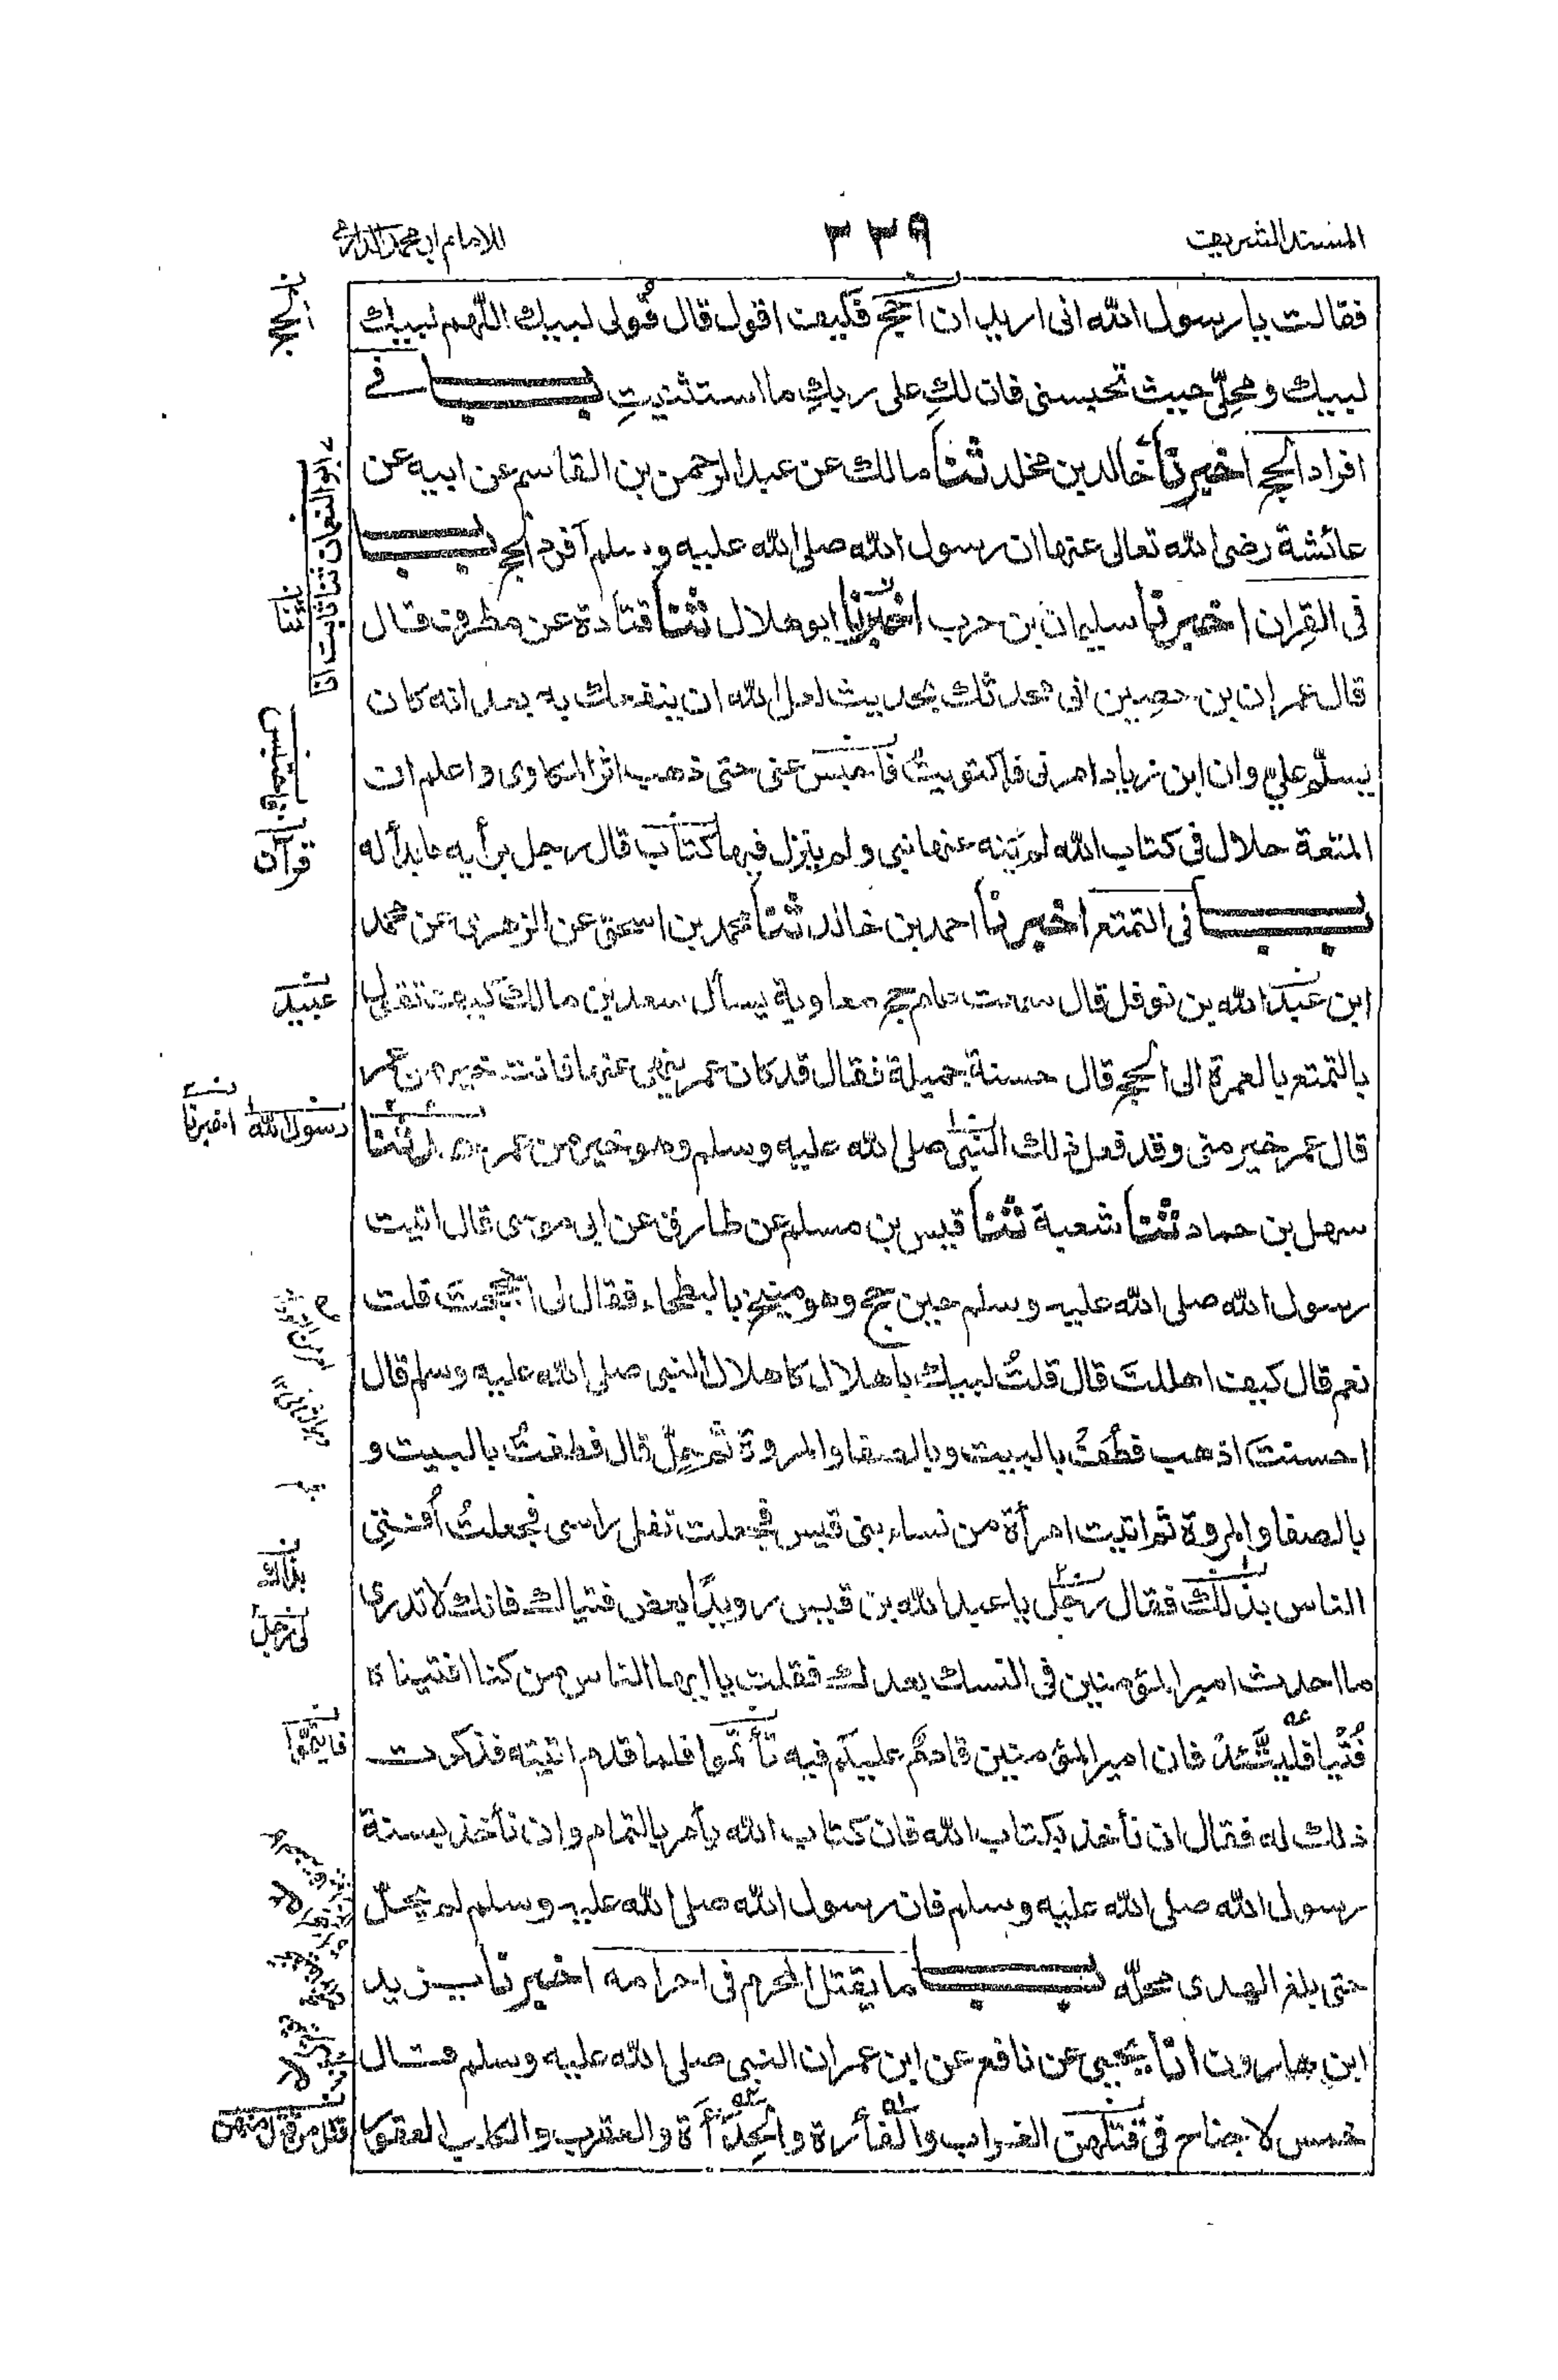 المسند الشريف
٣٣٩
للامام ابی محمد الدارمی
فقالت يا رسول الله انی اريد ان احج فكيف اقول قال قُولی لبيك اللّٰهم لبيك
لبيك ومحِلّی حيث تحبسنی فان لكِ علی ربكِ ما استثنيتِ باب فے
افراد الحج اخبرنا خالد بن مخلد ثنا مالك عن عبد الرحمن بن القاسم عن ابيه عن
عائشة رضی الله تعالی عنها ان رسول الله صلی الله عليه وسلم افرد الحج باب
فی القِران اخبرنا سليمان بن حرب اخبرنا ابو هلال ثنا قتادة عن مطرف قال
قال عمران بن حصين انی محدثك بحديث لعل الله ان ينفعك به بعد انه كان
يسلّم علیّ وان ابن زياد امرنی فاكتويتُ فاحتبس عنی حتی ذهب اثر المكاوی واعلم ان
المتعة حلال فی كتاب الله لم يَنه عنها نبی ولم ينزل فيها كتاب قال رجل برأيه ما بدأ له
باب فی التمتع اخبرنا احمد بن خالد ثنا محمد بن اسحق عن الزهری عن محمد
ابن عبد الله بن نوفل قال سمعت عام حج معاوية يسأل سعد بن مالك كيف تقول
بالتمتع بالعمرة الی الحج قال حسنة جميلة فقال قد كان عمر ينهی عنها فانت خير من عمر
قال عمر خير منی وقد فعل ذلك النبی صلی الله عليه وسلم وهو خير من عمر حدثنا
سهل بن حماد ثنا شعبة ثنا قيس بن مسلم عن طارق عن ابی موسی قال اتيت
رسول الله صلی الله عليه وسلم حين حج وهو منيخ بالبطحاء فقال لی احججتَ قلت
نعم قال كيف اهللتَ قال قلتُ لبيك باهلال كاهلال النبی صلی الله عليه وسلم قال
احسنتَ اذهب فطُف بالبيت وبالصفا والمروة ثم حِلّ قال فطفتُ بالبيت و
بالصفا والمروة ثم اتيت امرأة من نساء بنی قيس فجعلت تفلی راسی فجعلتُ اُفتی
الناس بذلك فقال رجُل يا عبد الله بن قيس رويدًا بعض فتياك فانك لا تدری
ما احدث امير المؤمنين فی النسك بعدك فقلت يا ايها الناس من كنا افتيناه
فُتْيا فليتَّئدْ فان امير المؤمنين قادم عليكم فبه تأتموا فلما قدم اتيته فذكرت
ذلك له فقال ان نأخذ بكتاب الله فان كتاب الله يأمر بالتمام وان نأخذ بسنة
رسول الله صلی الله عليه وسلم فان رسول الله صلی الله عليه وسلم لم يحلّ
حتی بلغ الهدی محلّه باب ما يقتل المحرم فی احرامه اخبرنا يزيد
ابن هارون انا يحيی عن نافع عن ابن عمر ان النبی صلی الله عليه وسلم قال
خمس لا جناح فی قتلهن الغراب والفأرة والحِدَأة والعقرب والكلب العقور
الحج
ابو النعمان ثنا ثابت انا
ثنا
فاحتبس
قرآن
عبيد
رسول الله اخبرنا
بذاك
لی رجل
فايتمّوا